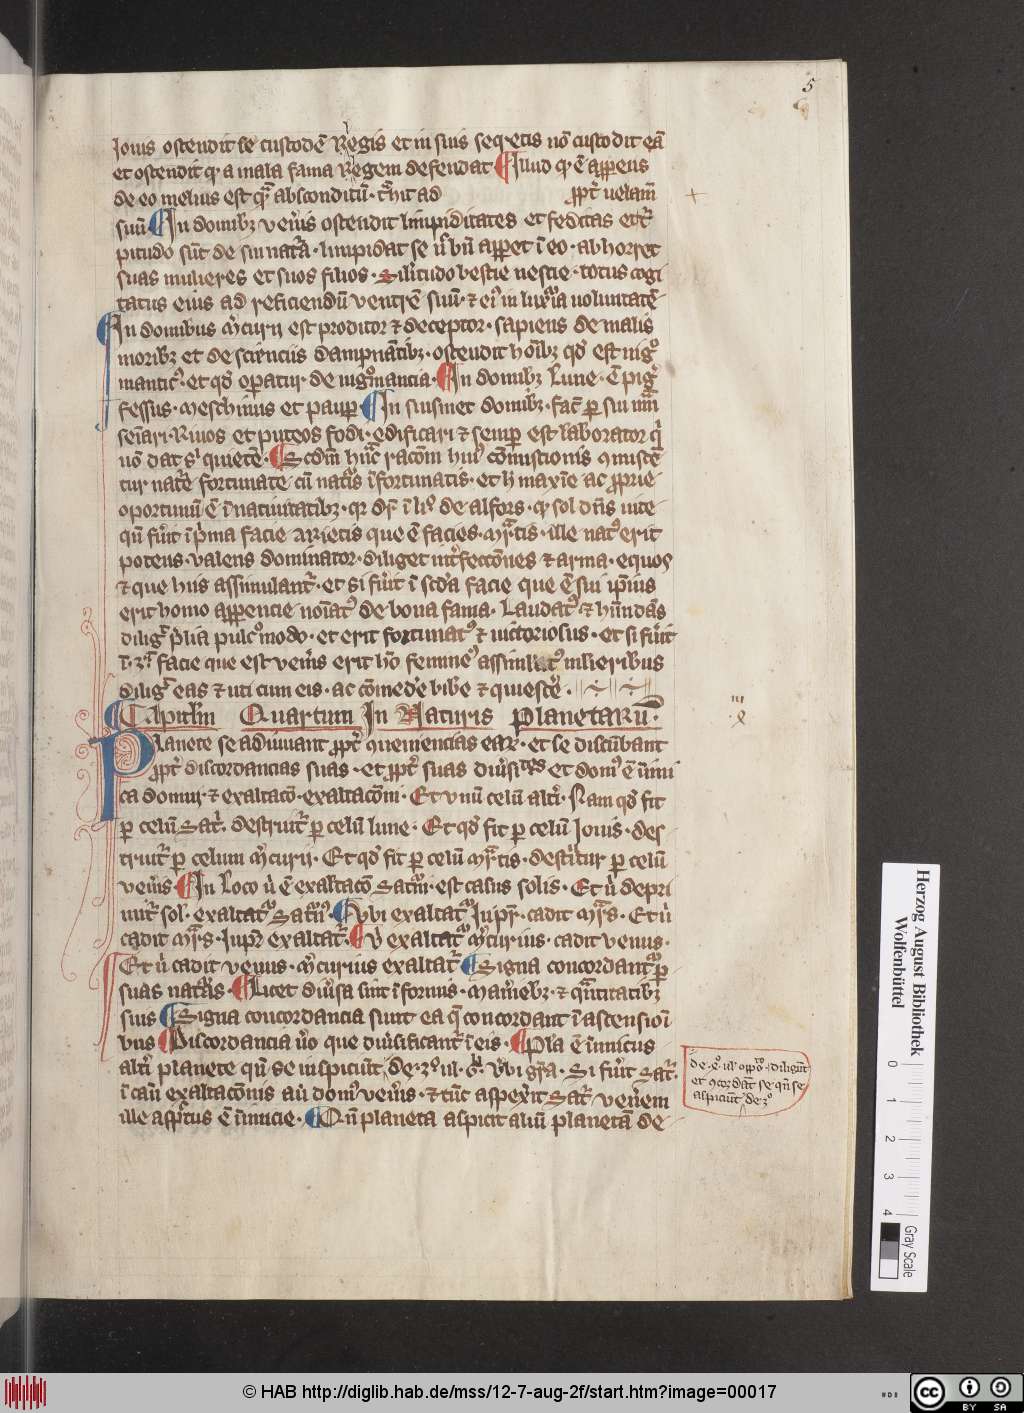 5
Iouis ostendit se custodē Regis et in suis secretis nō custodit eā
et ostendit qr a mala fama Regem defendat ¶ Illud qr ē appens
de eo melius est qͣ absconditū ad ppt uelam
suū ¶ In domibꝫ veñis ostendit limpiditates et feditas et
pitudo sūt de sui natᵃ limpidat se bñ appet ī eo abhorret
suas mulieres et suos filios Silitudo bestie uestie totus cogi
tatus eius ad reficiendū ventrē suū ⁊ eiꝰ in luxᵃia uoluntatē
In domibus mᵉcurii est proditor ⁊ deceptor sapiens de malis
moribꝫ et de scienciis dampnatibꝫ ostendit hōibꝫ qd est nigᵒ
manticꝰ et qd opatur de nigᵒmancia ¶ In domibꝫ Lune ē pigᵉ
fessus meschinus et paup ¶ In suismet domibꝫ fac p sui
seīari Riuos et puteos fodi edificari ⁊ semp est laborator qͥ
nō dat sͥ quietē ¶ Scdm hāc racōm huiꝰ cōmistionis ꝯmistē
tur natᵉ fortunate cū natᵃis īfortunatis et h maxīe ac pprie
oportunū ē ī natiuitatibꝫ qr df ī liᵒ de alfors qr sol dñs uite
qñ fuit ī pͥma facie arietis que ē facies mᵃrtis ille natꝰ erit
potens valens dominator diliget intᵉfectōnes ⁊ arma equos
⁊ que hiis assimulantᵉ et si fuit ī scda facie que ē sui ipsius
erit homo appencie noīatꝰ de bona fama Laudatꝰ ⁊ hñdās
diligᵉ plia pulcᵒ modo et erit fortunatꝰ ⁊ uictoriosus et si fuit
ī 3ᵃ facie que est veñis erit hō femineꝰ assimilatꝰ mlieribus
diligᵉ eas ⁊ uti cum eis ac cōmedᵉe bibᵉe ⁊ quiescᵉe
¶ Capitulm Quartum In Naturis Planetarū
Planete se adiuuant ppt ꝯueniencias eaꝝ et se disturbant
ppt discordancias suas et ppt suas diuᵉsitates et domꝰ ē inimi
ca domui ⁊ exaltacō exaltacōni Et unū celū altᵉi Nam qd fit
p celū Satᵉ destruitᵉ p celū lune Et qd fit p celū Iouis des
truitᵉ p celum mᵉcurii Et qd fit p celū mᵃrtis destruitur p celū
veñis ¶ In Loco ū ē exaltacō Satᵉni est casus solis Et ū depri
mitᵉ sol exaltatᵘ Satᵉnꝰ ¶ Vbi exaltatᵘ Iupᵉ cadit mᵃrs Et ū
cadit mᵃrs Iupᵉ exaltatᵉ ¶ Ū exaltatᵘ mᵉcurius cadit venus
Et ū cadit venus mᵉcurius exaltatᵉ ¶ Signa concordantᵘ p
suas natᵃas ¶ Licet diuᵉsa sint ī formis maneribꝫ ⁊ qᵃntitatibꝫ
suis ¶ Signa concordancia sunt ea q concordant ī ascensioī
bus ¶ Discordancia uᵒ que diuᵉsificantᵉ ī eis ¶ Pla ē inimicus
altᵉi planete qñ se inspiciūt de 3ᵒ ul 6ᵒ Vᵉbi gᵃa Si fuit Satᵉ
ī casu exaltacōnis aū domꝰ veñis ⁊ tūc aspexit Satᵉ venᵉem
ille aspᵉtus ē inimicie ¶ Qñ planeta aspicit aliū planetā de
de 4ᵒ ul oppoᵉ diligunt
et ꝯcordāt se qñ se
aspiciūt de 3ᵒ
Herzog August Bibliothek
Wolfenbüttel
0 1 2 3 4
Gray Scale
© HAB http://diglib.hab.de/mss/12-7-aug-2f/start.htm?image=00017
cc BY SA